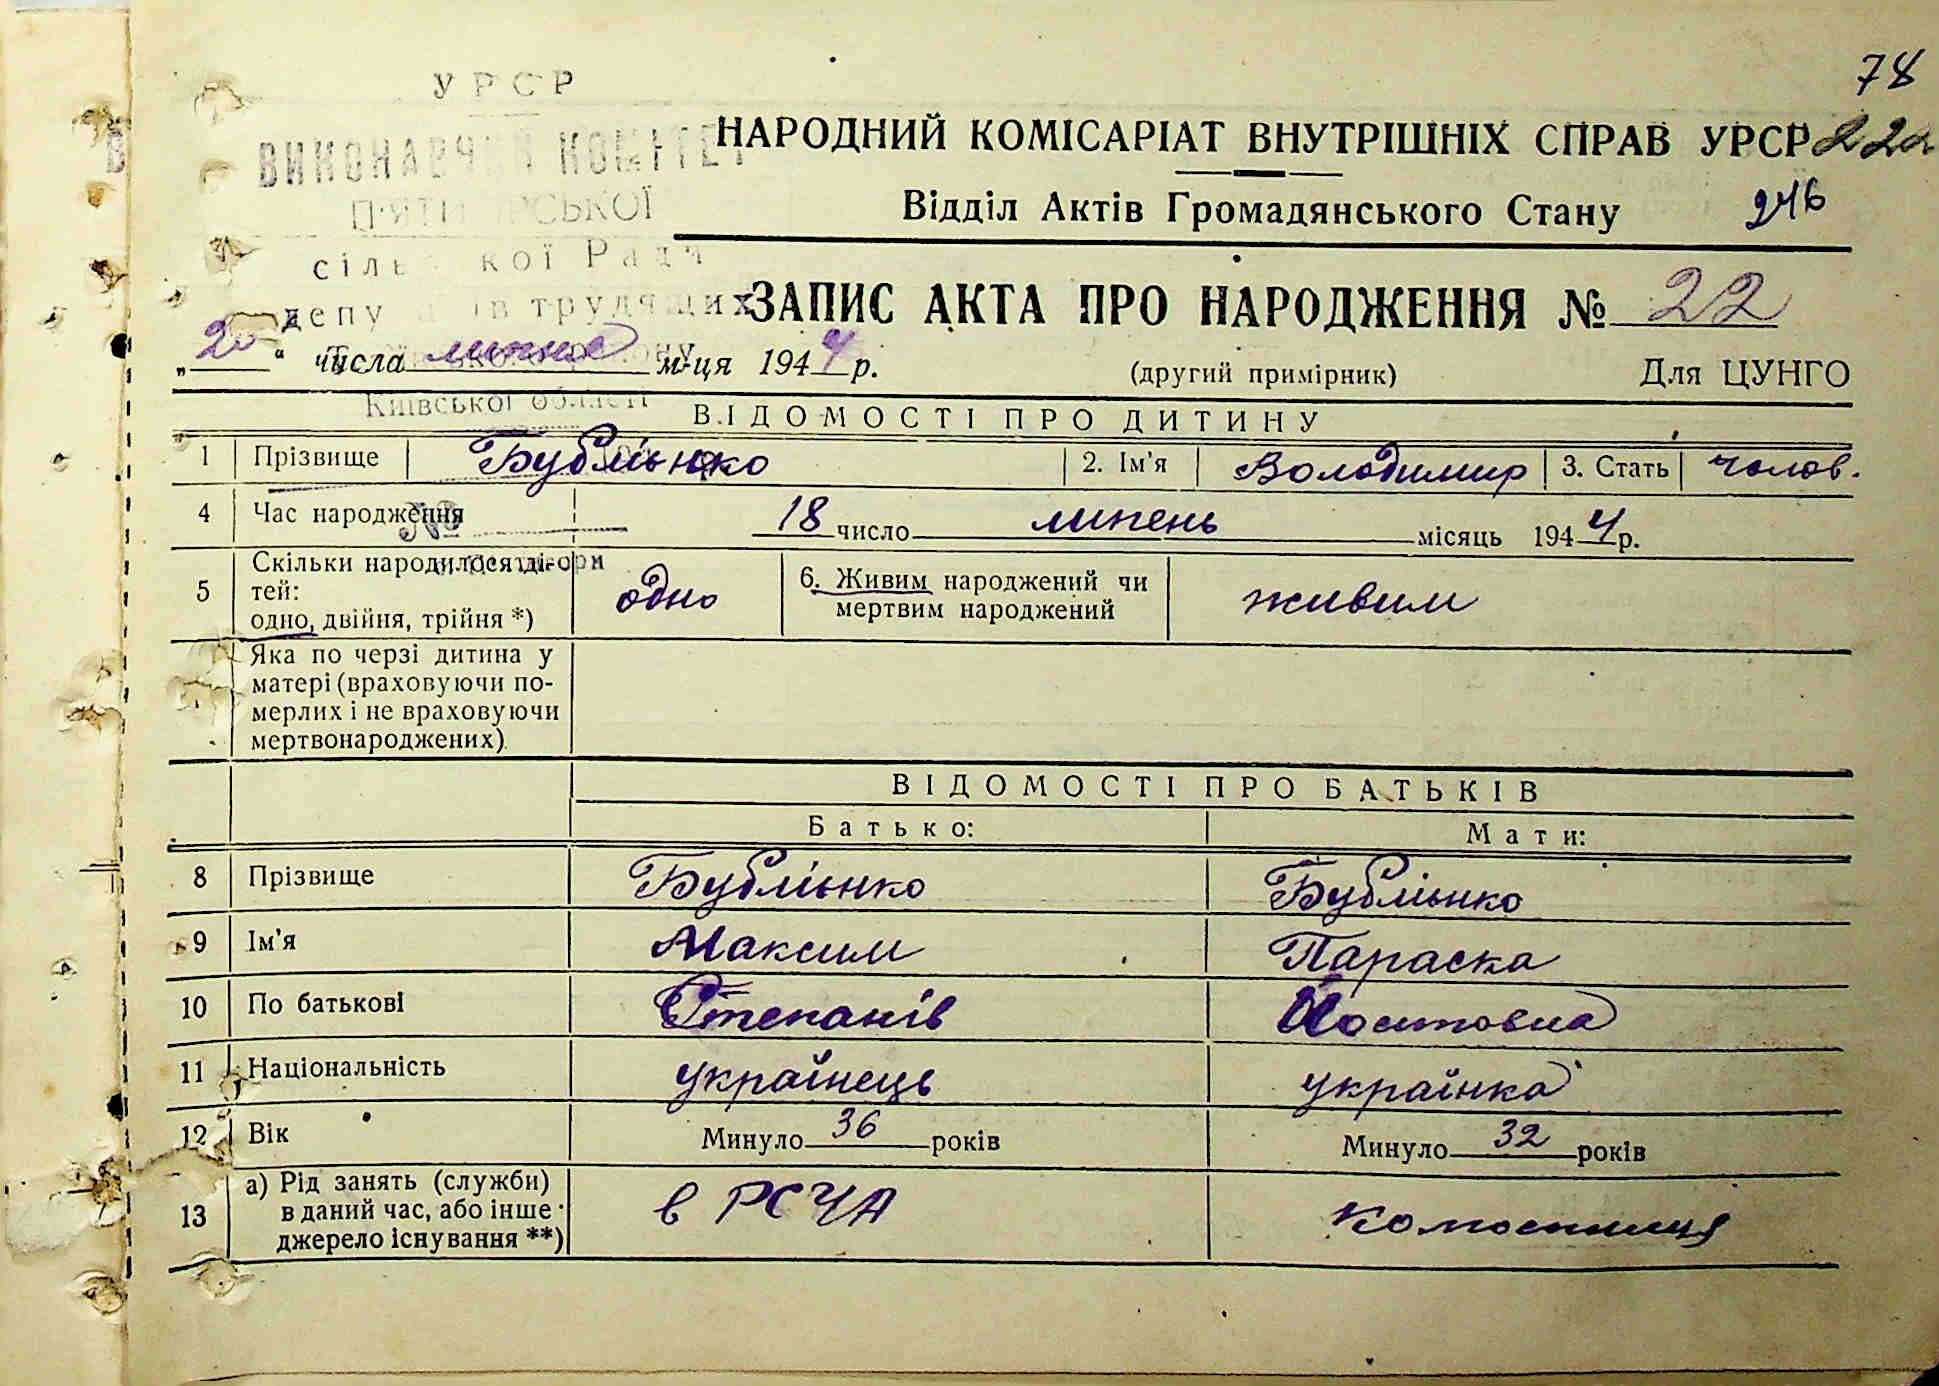 78
УРСР
НАРОДНИЙ КОМІСАРІАТ ВНУТРІШНІХ СПРАВ УРСР
ВИКОНАВЧИЙ КОМІТЕТ
Відділ Актів Громадянського Стану 246
П'ЯТИГІРСЬКОЇ
сільської Ради
депутатів трудящих
ЗАПИС АКТА ПРО НАРОДЖЕННЯ № 22
„20“ числа липня м-ця 1944 р. (другий примірник) Для ЦУНГО
Київської області
ВІДОМОСТІ ПРО ДИТИНУ
1 Прізвище Бублієнко 2. Ім'я Володимир 3. Стать чолов.
4 Час народження 18 число липень місяць 1944 р.
№
с. П'ятигори
5 Скільки народилося ді-
тей:
одно, двійня, трійня *) одно
6. Живим народжений чи
мертвим народжений живим
Яка по черзі дитина у
матері (враховуючи по-
мерлих і не враховуючи
мертвонароджених)
ВІДОМОСТІ ПРО БАТЬКІВ
Батько: Мати:
8 Прізвище Бублієнко Бублієнко
9 Ім'я Максим Параска
10 По батькові Степанів
11 Національність українець українка
12 Вік Минуло 36 років Минуло 32 років
13 а) Рід занять (служби)
в даний час, або інше
джерело існування **) в РСЧА колгоспниця